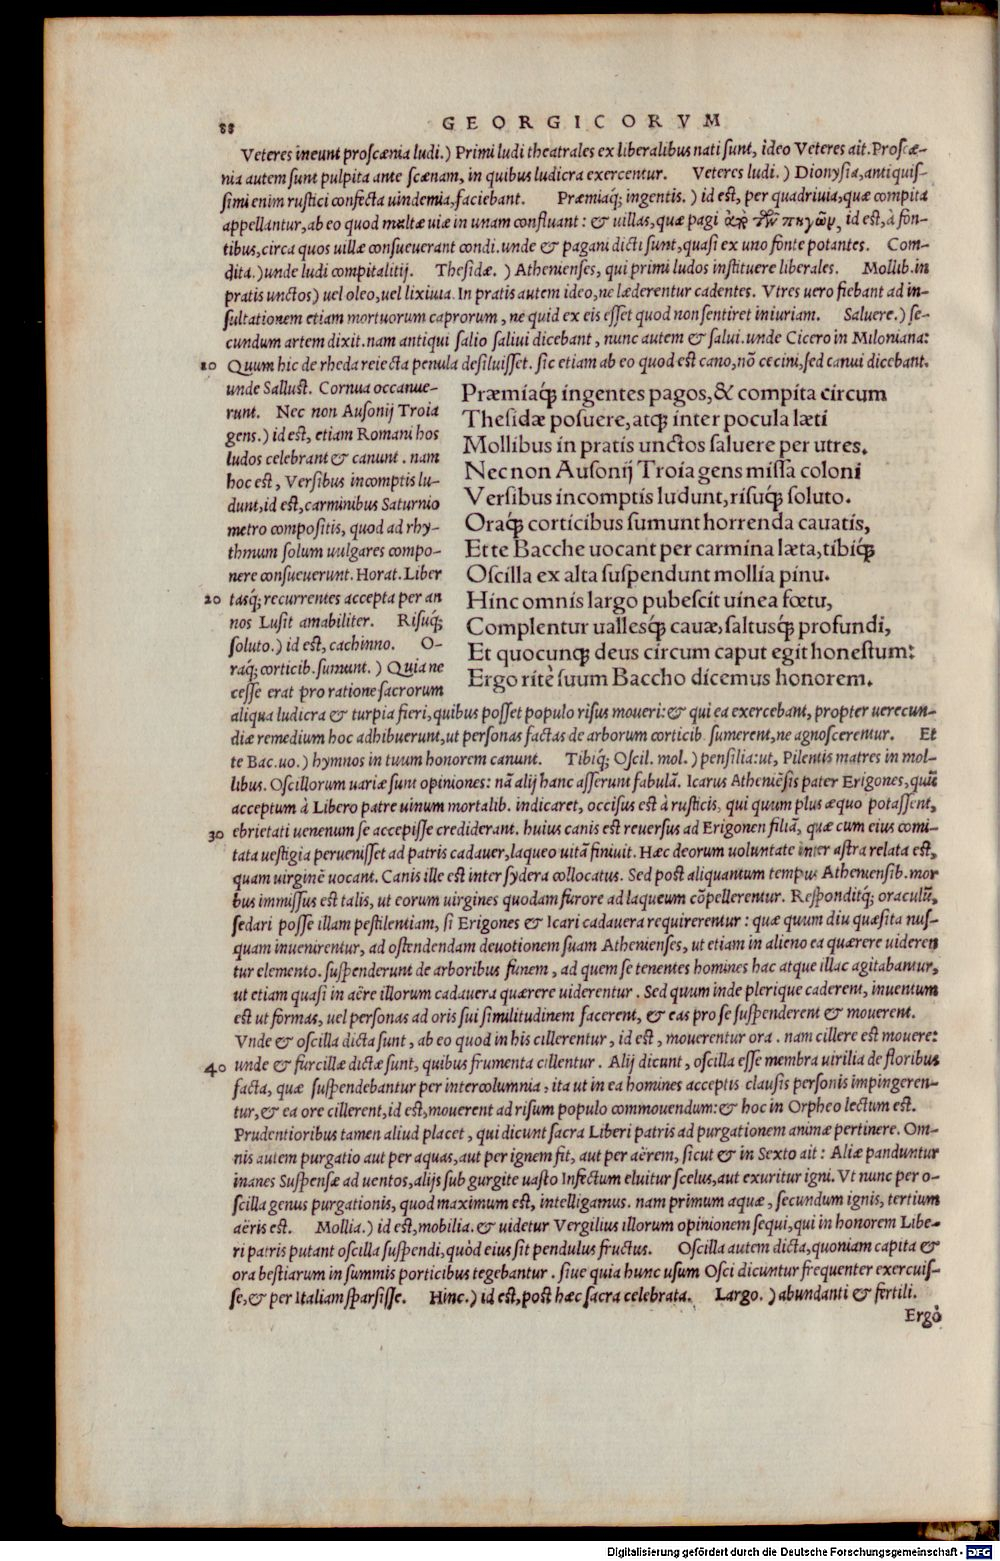 88
GEORGICORVM
Veteres ineunt proscænia ludi.) Primi ludi theatrales ex liberalibus nati sunt, ideo Veteres ait. Proscæ-
nia autem sunt pulpita ante scænam, in quibus ludicra exercentur. Veteres ludi.) Dionysia, antiquis-
simi enim rustici confecta uindemia, faciebant. Præmiaq́; ingentis.) id est, per quadriuia, quæ compita
appellantur, ab eo quod multæ uiæ in unam confluant: & uillas, quæ pagi ἀπὸ τῶν πηγῶν, id est, à fon-
tibus, circa quos uillæ consueuerant condi. unde & pagani dicti sunt, quasi ex uno fonte potantes. Com-
dita.) unde ludi compitalitij. Thesidæ.) Athenienses, qui primi ludos instituere liberales. Mollib. in
pratis unctos) uel oleo, uel lixiuia. In pratis autem ideo, ne læderentur cadentes. Vtres uero fiebant ad in-
sultationem etiam mortuorum caprorum, ne quid ex eis esset quod non sentiret iniuriam. Saluere.) se-
cundum artem dixit. nam antiqui salio saliui dicebant, nunc autem & salui. unde Cicero in Miloniana:
10 Quum hic de rheda reiecta penula desiluisset. sic etiam ab eo quod est cano, nõ cecini, sed canui dicebant.
unde Sallust. Cornua occanue-
runt. Nec non Ausonij Troia
gens.) id est, etiam Romani hos
ludos celebrant & canunt. nam
hoc est, Versibus incomptis lu-
dunt, id est, carminibus Saturnio
metro compositis, quod ad rhy-
thmum solum uulgares compo-
nere consueuerunt. Horat. Liber
20 tasq́; recurrentes accepta per an
nos Lusit amabiliter. Risuq́;
soluto.) id est, cachinno. O-
raq́; corticib. sumunt.) Quia ne
cesse erat pro ratione sacrorum
Præmiaq́; ingentes pagos, & compita circum
Thesidæ posuere, atq́; inter pocula læti
Mollibus in pratis unctos saluere per utres.
Nec non Ausonij Troia gens missa coloni
Versibus incomptis ludunt, risuq́; soluto.
Oraq́; corticibus sumunt horrenda cauatis,
Et te Bacche uocant per carmina læta, tibiq́;
Oscilla ex alta suspendunt mollia pinu.
Hinc omnis largo pubescit uinea fœtu,
Complentur uallesq́; cauæ, saltusq́; profundi,
Et quocunq́; deus circum caput egit honestum:
Ergo ritè suum Baccho dicemus honorem.
aliqua ludicra & turpia fieri, quibus posset populo risus moueri: & qui ea exercebant, propter uerecun-
diæ remedium hoc adhibuerunt, ut personas factas de arborum corticib. sumerent, ne agnoscerentur. Et
te Bac. uo.) hymnos in tuum honorem canunt. Tibiq́; Oscil. mol.) pensilia: ut, Pilentis matres in mol-
libus. Oscillorum uariæ sunt opiniones: nã alij hanc asserunt fabulã. Icarus Atheniẽsis pater Erigones, quũ
acceptum à Libero patre uinum mortalib. indicaret, occisus est à rusticis, qui quum plus æquo potassent,
30 ebrietati uenenum se accepisse crediderant. huius canis est reuersus ad Erigonen filiã, quæ cum eius comi-
tata uestigia peruenisset ad patris cadauer, laqueo uitã finiuit. Hæc deorum uoluntate inter astra relata est,
quam uirginẽ uocant. Canis ille est inter sydera collocatus. Sed post aliquantum tempus Atheniensib. mor
bus immissus est talis, ut eorum uirgines quodam furore ad laqueum cõpellerentur. Responditq́; oraculũ,
sedari posse illam pestilentiam, si Erigones & Icari cadauera requirerentur: quæ quum diu quæsita nus-
quam inuenirentur, ad ostendendam deuotionem suam Athenienses, ut etiam in alieno ea quærere uideren
tur elemento. suspenderunt de arboribus funem, ad quem se tenentes homines hac atque illac agitabantur,
ut etiam quasi in aëre illorum cadauera quærere uiderentur. Sed quum inde plerique caderent, inuentum
est ut formas, uel personas ad oris sui similitudinem facerent, & eas pro se suspenderent & mouerent.
Vnde & oscilla dicta sunt, ab eo quod in his cillerentur, id est, mouerentur ora. nam cillere est mouere:
40 unde & furcillæ dictæ sunt, quibus frumenta cillentur. Alij dicunt, oscilla esse membra uirilia de floribus
facta, quæ suspendebantur per intercolumnia, ita ut in ea homines acceptis clausis personis impingeren-
tur, & ea ore cillerent, id est, mouerent ad risum populo commouendum: & hoc in Orpheo lectum est.
Prudentioribus tamen aliud placet, qui dicunt sacra Liberi patris ad purgationem animæ pertinere. Om-
nis autem purgatio aut per aquas, aut per ignem fit, aut per aërem, sicut & in Sexto ait: Aliæ panduntur
inanes Suspensæ ad uentos, alijs sub gurgite uasto Infectum eluitur scelus, aut exuritur igni. Vt nunc per o-
scilla genus purgationis, quod maximum est, intelligamus. nam primum aquæ, secundum ignis, tertium
aëris est. Mollia.) id est, mobilia. & uidetur Vergilius illorum opinionem sequi, qui in honorem Libe-
ri patris putant oscilla suspendi, quòd eius sit pendulus fructus. Oscilla autem dicta, quoniam capita &
ora bestiarum in summis porticibus tegebantur. siue quia hunc usum Osci dicuntur frequenter exercuis-
se, & per Italiam sparsisse. Hinc.) id est, post hæc sacra celebrata. Largo.) abundanti & fertili.
Ergò
Digitalisierung gefördert durch die Deutsche Forschungsgemeinschaft - DFG